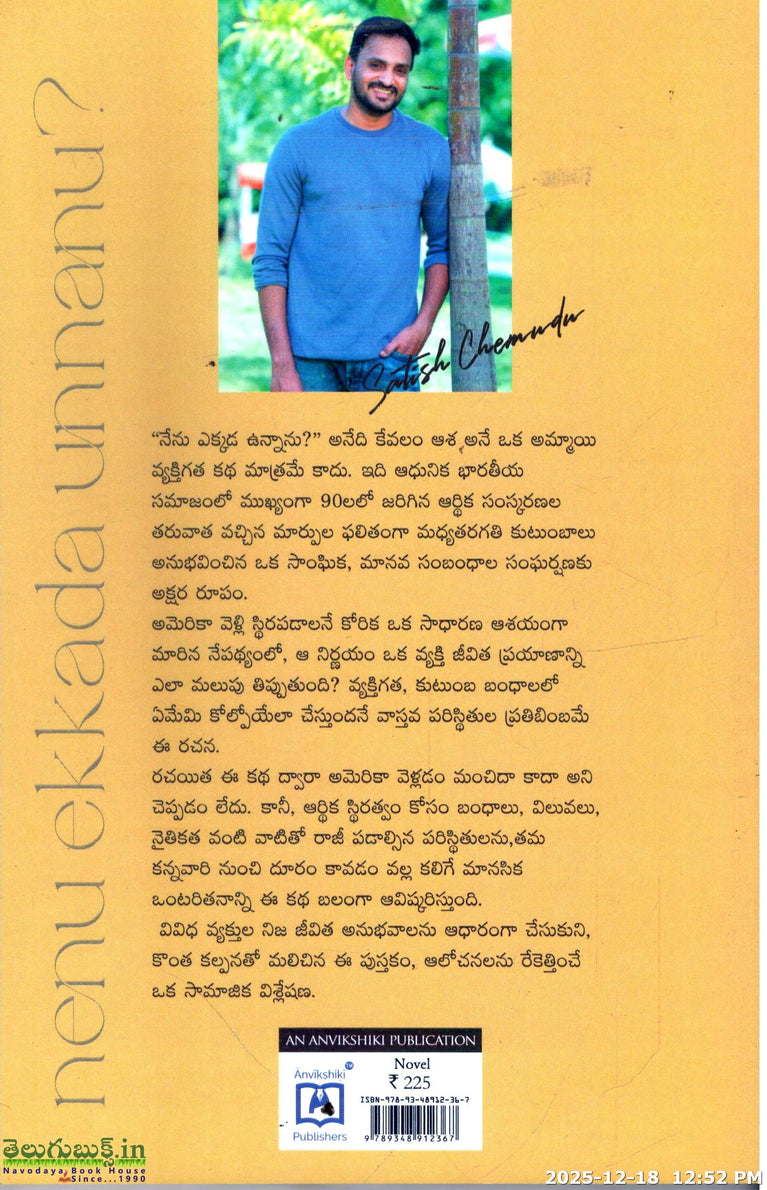 nenu ekkada unnanu?
Satish Chemudu
“నేను ఎక్కడ ఉన్నాను?” అనేది కేవలం ఆశ అనే ఒక అమ్మాయి
వ్యక్తిగత కథ మాత్రమే కాదు. ఇది ఆధునిక భారతీయ
సమాజంలో ముఖ్యంగా 90లలో జరిగిన ఆర్థిక సంస్కరణల
తరువాత వచ్చిన మార్పుల ఫలితంగా మధ్యతరగతి కుటుంబాలు
అనుభవించిన ఒక సాంఘిక, మానవ సంబంధాల సంఘర్షణకు
అక్షర రూపం.
అమెరికా వెళ్లి స్థిరపడాలనే కోరిక ఒక సాధారణ ఆశయంగా
మారిన నేపథ్యంలో, ఆ నిర్ణయం ఒక వ్యక్తి జీవిత ప్రయాణాన్ని
ఎలా మలుపు తిప్పుతుంది? వ్యక్తిగత, కుటుంబ బంధాలలో
ఏమేమి కోల్పోయేలా చేస్తుందనే వాస్తవ పరిస్థితుల ప్రతిబింబమే
ఈ రచన.
రచయిత ఈ కథ ద్వారా అమెరికా వెళ్లడం మంచిదా కాదా అని
చెప్పడం లేదు. కానీ, ఆర్థిక స్థిరత్వం కోసం బంధాలు, విలువలు,
నైతికత వంటి వాటితో రాజీ పడాల్సిన పరిస్థితులను,తమ
కన్నవారి నుంచి దూరం కావడం వల్ల కలిగే మానసిక
ఒంటరితనాన్ని ఈ కథ బలంగా ఆవిష్కరిస్తుంది.
వివిధ వ్యక్తుల నిజ జీవిత అనుభవాలను ఆధారంగా చేసుకుని,
కొంత కల్పనతో మలిచిన ఈ పుస్తకం, ఆలోచనలను రేకెత్తించే
ఒక సామాజిక విశ్లేషణ.
AN ANVIKSHIKI PUBLICATION
Anvikshiki TM
Publishers
Novel
₹ 225
ISBN-978-93-48912-36-7
9 789348 912367
తెలుగుబుక్స్.in
Navodaya Book House
Since...1990
2025-12-18 12:52 PM